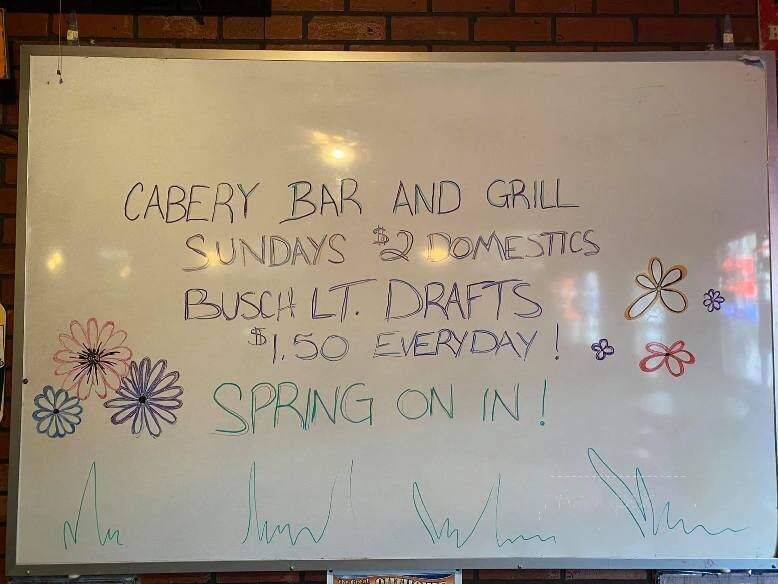 CABERY BAR AND GRILL
SUNDAYS $2 DOMESTICS
BUSCH LT. DRAFTS
$1.50 EVERYDAY!
SPRING ON IN!